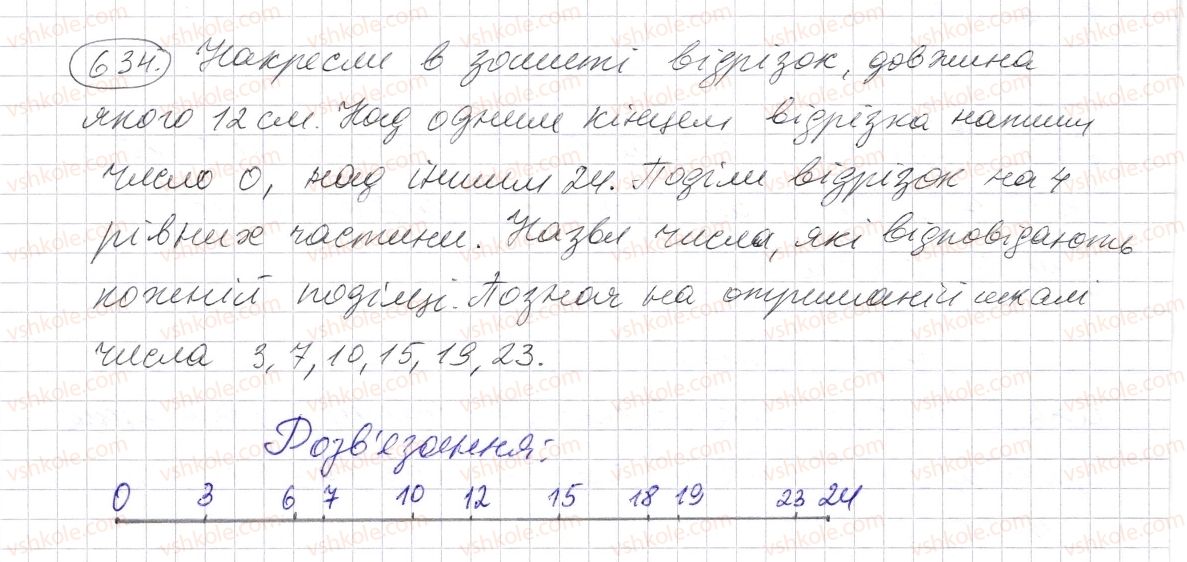 634. Накресли в зошиті відрізок, довжина
якого 12 см. Над одним кінцем відрізка напиши
число 0, над іншим 24. Поділи відрізок на 4
рівних частини. Назви числа, які відповідають
кожній поділці. Познач на отриманій шкалі
числа 3, 7, 10, 15, 19, 23.
Розв'язання:
0 3 6 7 10 12 15 18 19 23 24